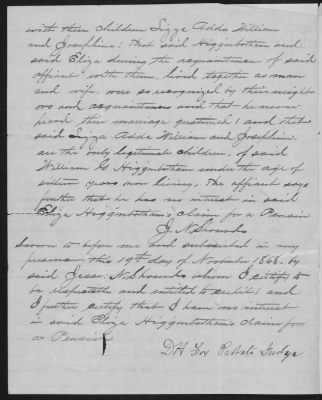 with their children Lizza Adda William
and Josephine: that said Higginbotham and
said Eliza during the acquaintance of said
affiant with them, lived together as man
and wife, were so recognized by their neighb
ors and acquaintances and that he never
heard their marriage questioned: and that
said Lizza Adda William and Josephine.
are the only legitimate children, of said
William G Higginbotham under the age of
sixteen years now living. The affiant says
further that he has no interest in said
Eliza Higginbotham's claim for a Pension
J. N. Shrouds
Sworn to before me and subscribed in my
presence this 19th day of November 1868. by
said Jesse N. Shrouds whom I certify to
be respectable and entitled to credit: and
I further certify that I have no interest
in said Eliza Higginbotham's claim for
a Pension
D H Fox Probate Judge